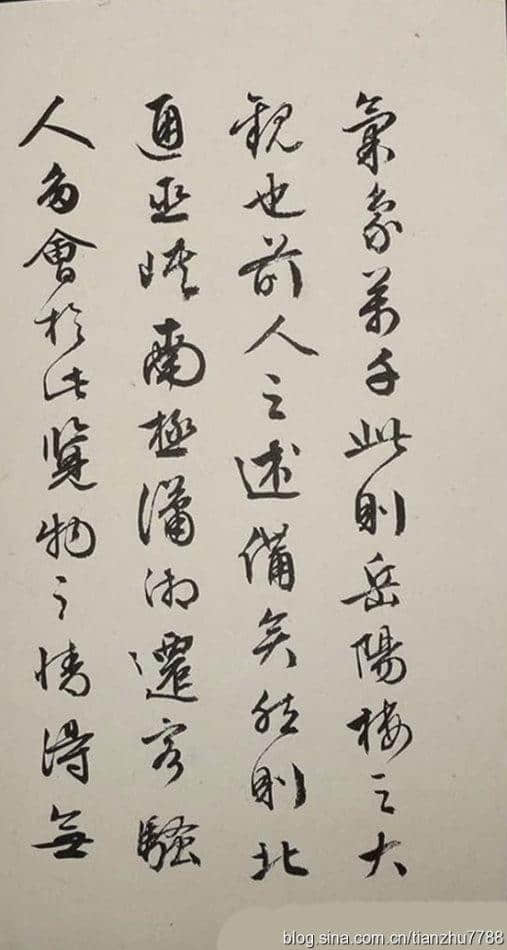 氣象萬千此則岳陽樓之大
觀也前人之述備矣然則北
通巫峽南極瀟湘遷客騷
人多會於此覽物之情得無
blog.sina.com.cn/tianzhu7788